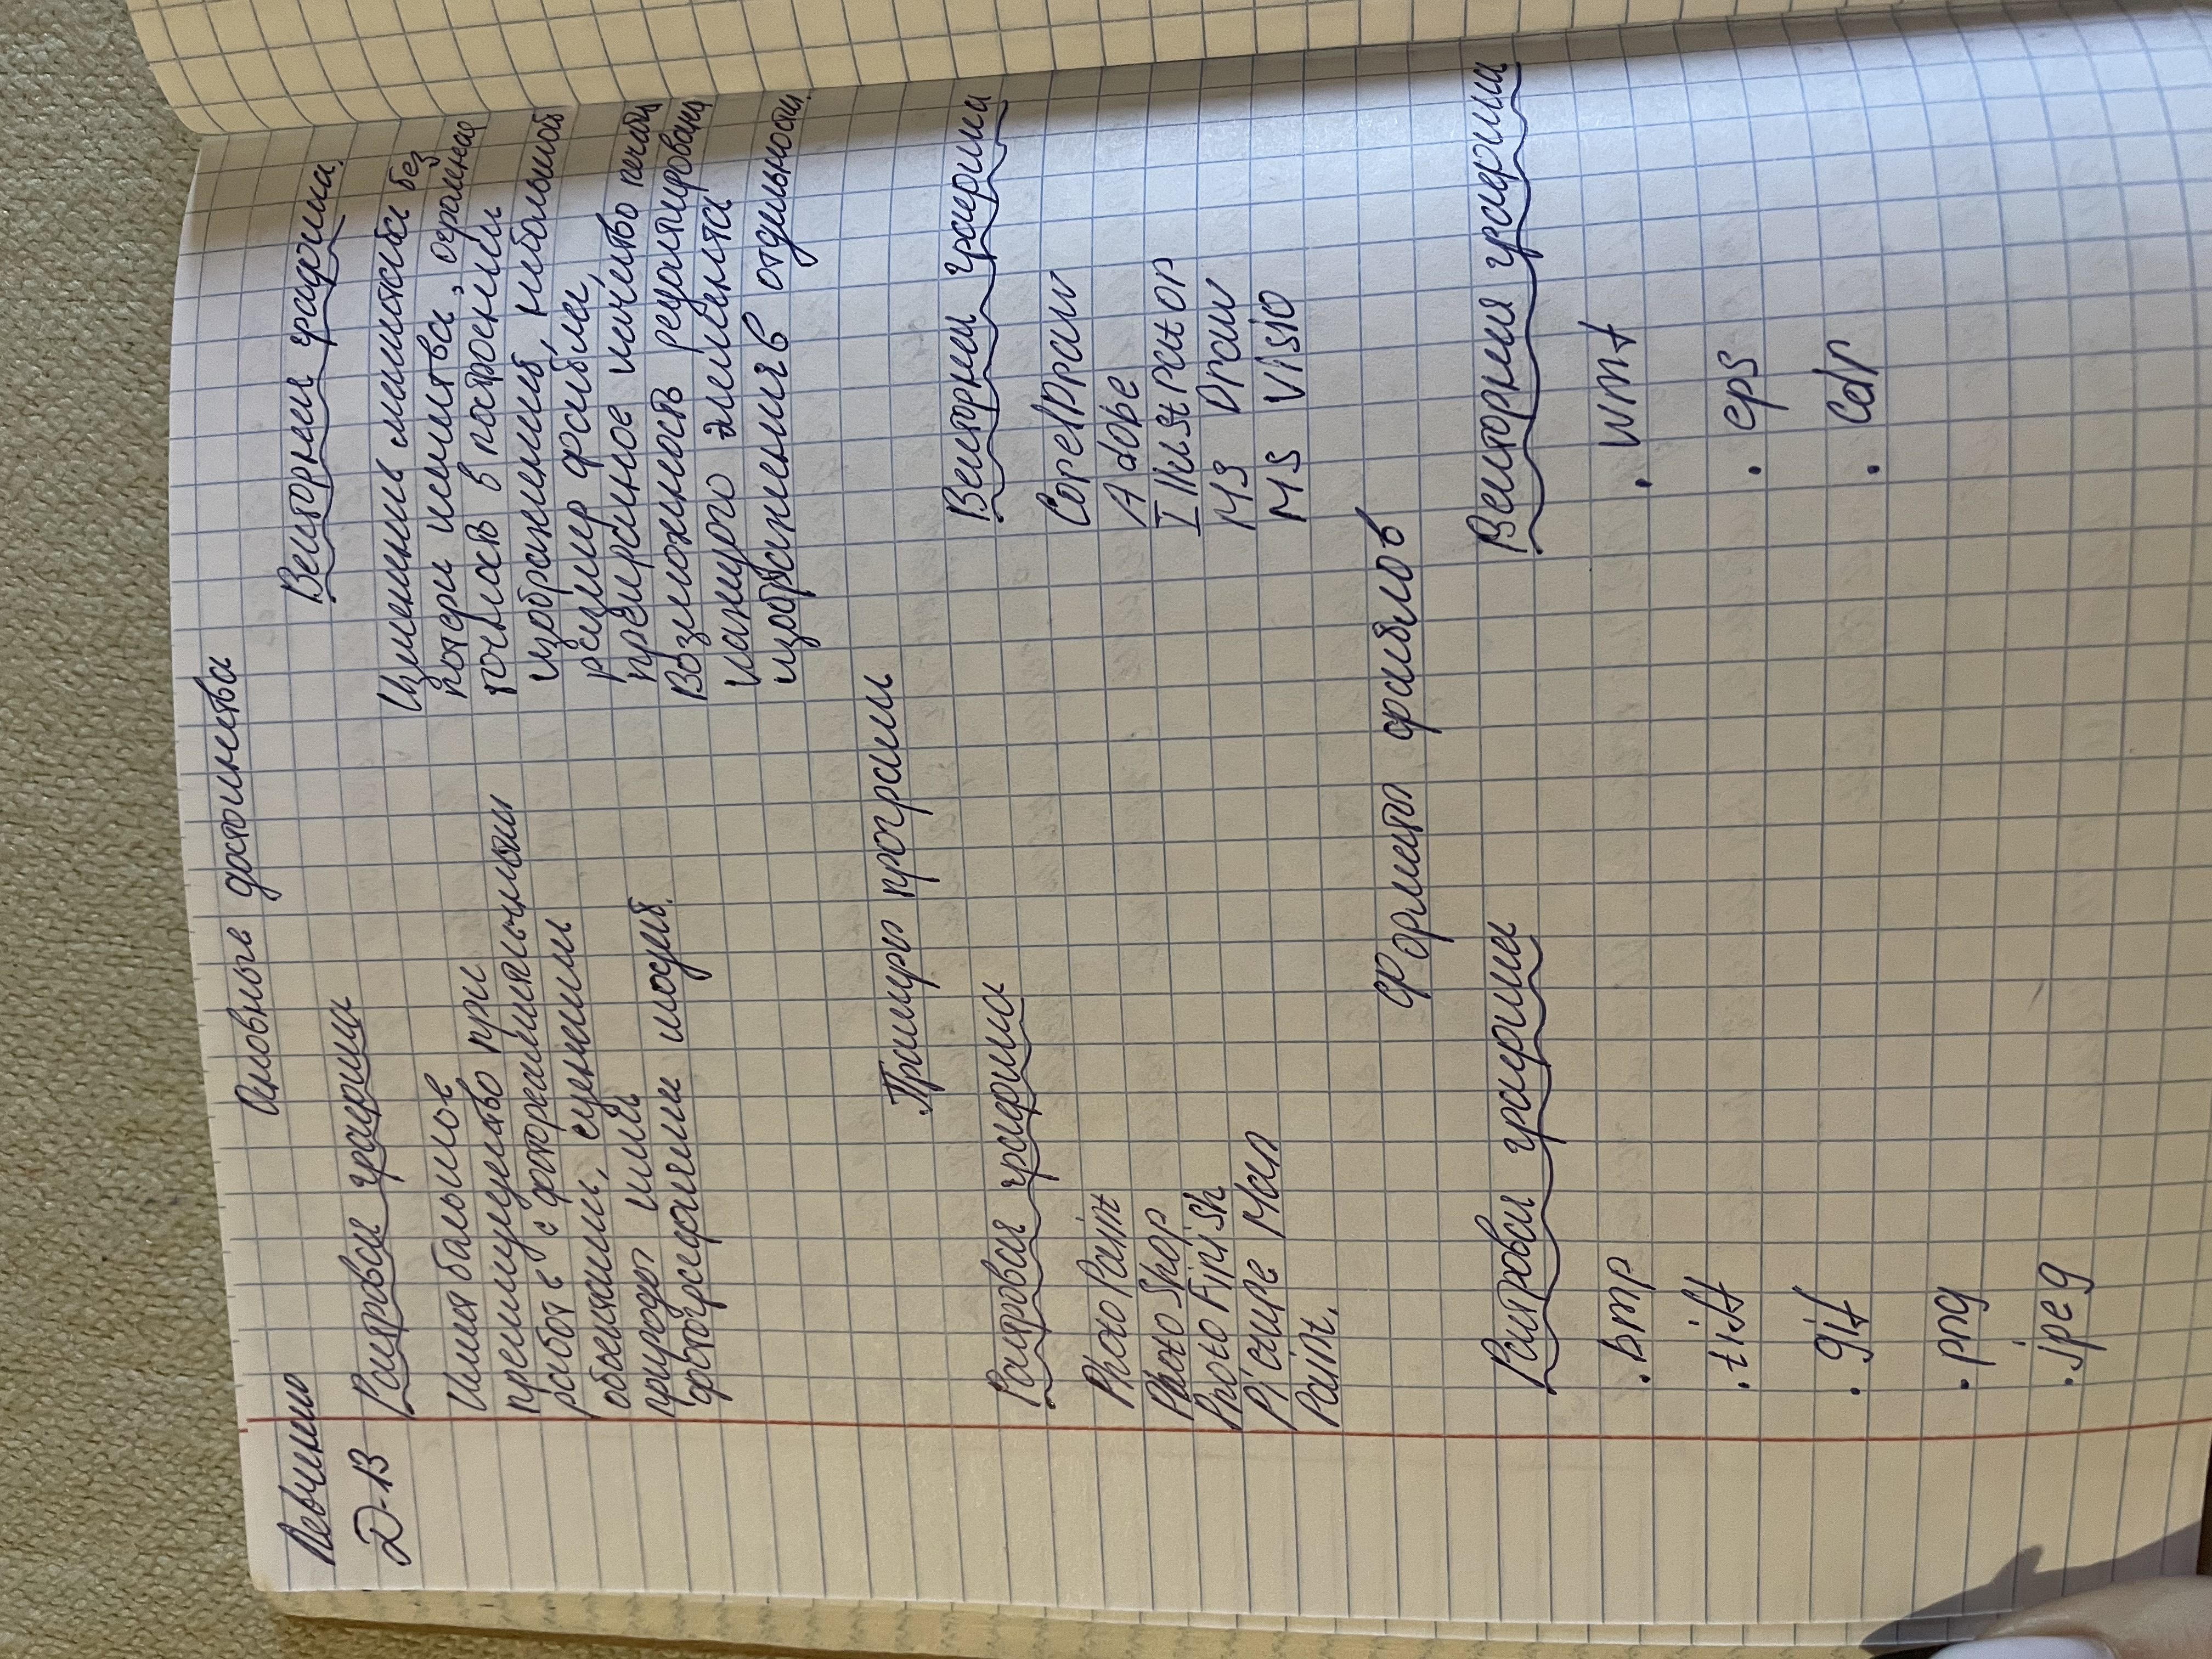 Левченко
Д-13
Основные достоинства
Растровая графика
Векторная графика.
Имеет больше
преимущество при
работе с фотореалистичными
объектами, сценами
природы или
фотографиями людей.
Изменения масштаба без
потери качества, огромная
точность в построении
изображений, небольшой
размер файла,
прекрасное качество печати
Возможность редактирования
каждого элемента
изображения в отдельности.
Примеры программ
Растровая графика
Векторная графика
Photo Paint
Photo Shop
Photo Finish
Picture Man
Paint.
CorelDraw
Adobe
Illustrator
MS Draw
MS Visio
Форматы файлов
Растровая графика
Векторная графика
.bmp
.tiff
.gif
.png
.jpeg
.wmf
.eps
.cdr